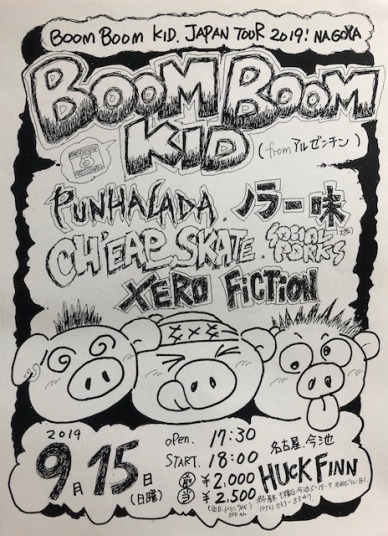 BOOM BOOM KID. JAPAN TOUR 2019! NAGOYA
BOOM BOOM
KID
(from アルゼンチン)
PUNHALADA. ノラ一味
CH'EAP SKATE. SOCIAL PORKS
XERO FiCTiON
2019
9月15日
(日曜)
OPEN. 17:30
START. 18:00
前 ¥2,000
当 ¥2,500
名古屋.今池
HUCK FINN